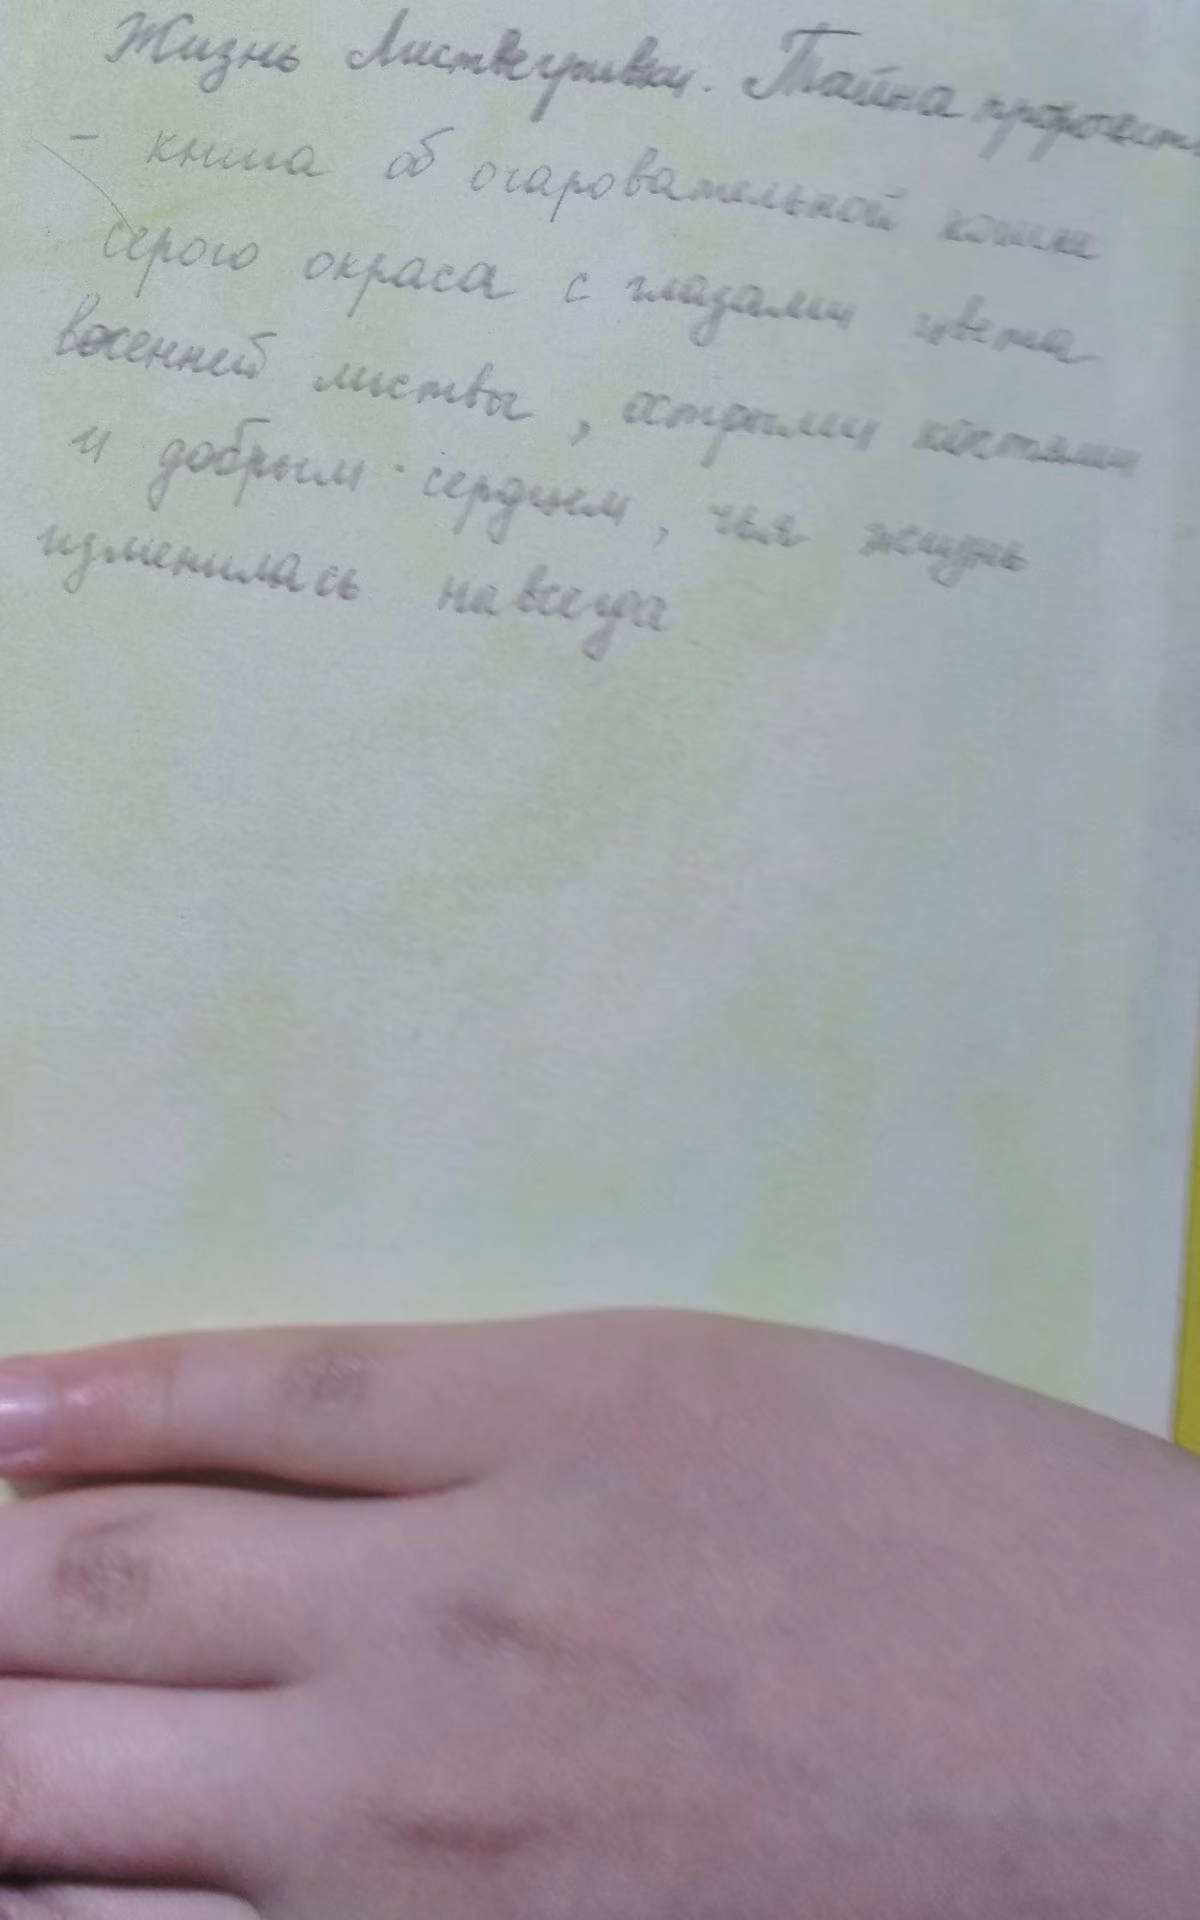 Жизнь Листвегривки. Тайна пророчеств
- книга об очаровательной кошке
серого окраса с глазами цвета
весенней листвы, острыми когтями
и добрым сердцем, чья жизнь
изменилась навсегда